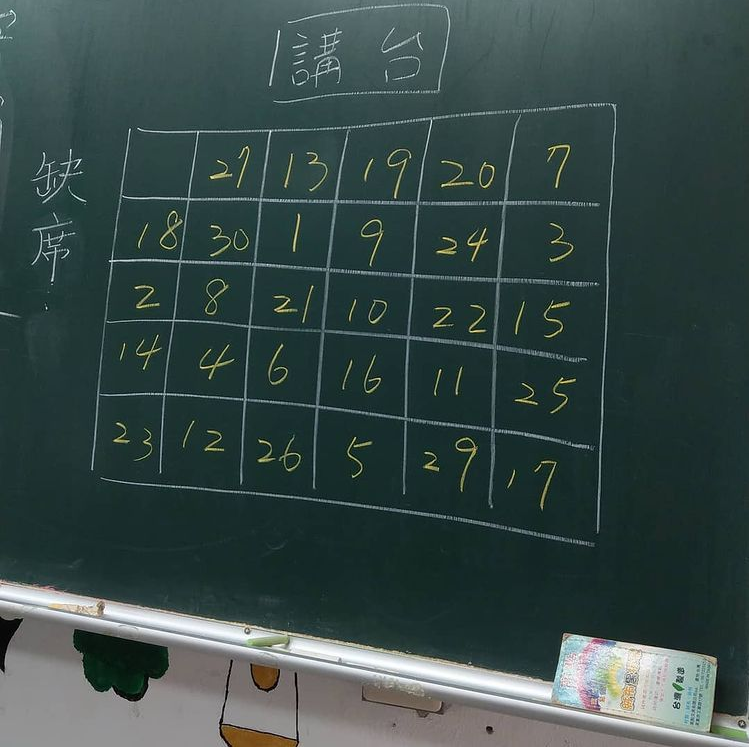 講台
缺席:
27 13 19 20 7
18 30 1 9 24 3
2 8 21 10 22 15
14 4 6 16 11 25
23 12 26 5 29 17
台灣製造